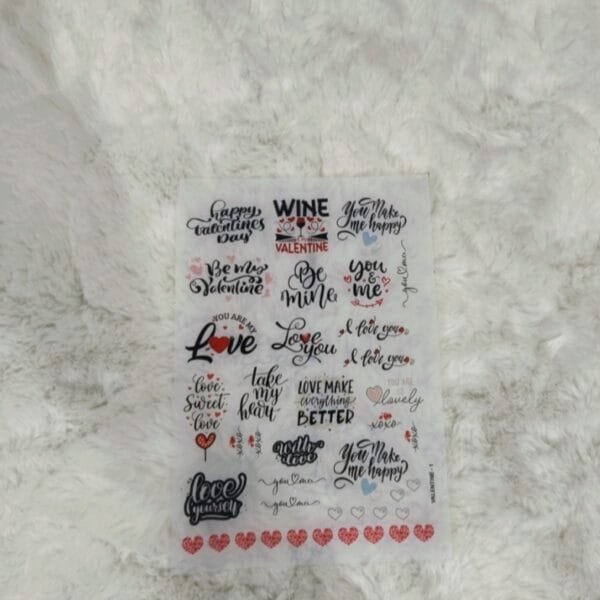 happy
Valentines
Day
WINE
is my
VALENTINE
You Make
me happy
Be my
Valentine
Be
mine
you
&
me
you me
YOU ARE MY
Love
Love
you
I love you
I love you
love
Sweet
love
take
my
heart
LOVE MAKE
everything
BETTER
YOU ARE
SO
lovely
xoxo
xoxo
xoxo
xoxo
with
love
You Make
me happy
love
yourself
you me
you me
VALENTINE - 1